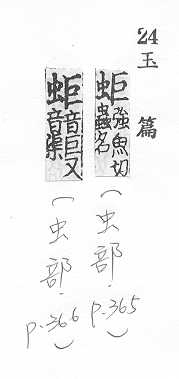 24
玉篇
蚷強魚切蟲名
(虫部.
p.365)
蚷音巨又音渠
(虫部.
p.366)